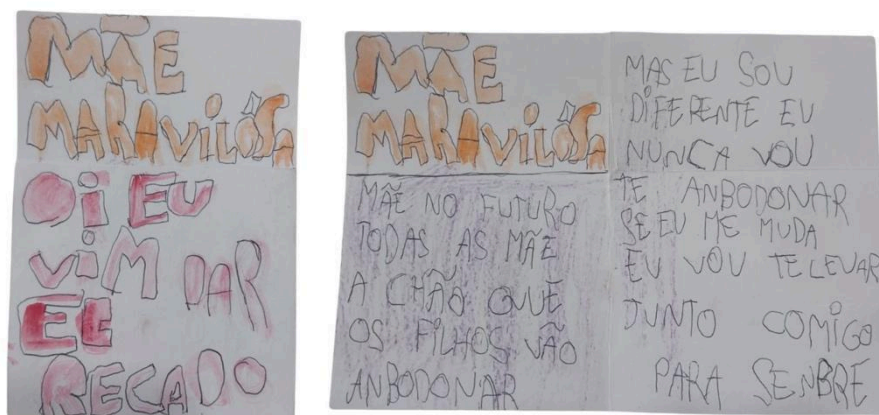 MÃE
MARAVILÔSA
OI EU
VIM DAR
EE
RECADO
MÃE
MARAVILÔSA
MÃE NO FUTURO
TODAS AS MÃE
A CHÃO QUE
OS FILHOS VÃO
ANBODONAR
MAS EU SOU
DIFERENTE EU
NUNCA VOU
TE ANBODONAR
SE EU ME MUDA
EU VOU TE LEVAR
JUNTO COMIGO
PARA SENBRE